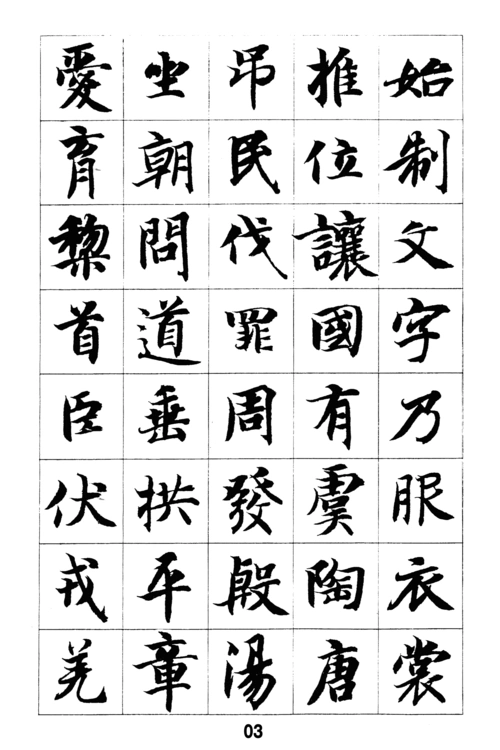 始制文字乃服衣裳
推位讓國有虞陶唐
弔民伐罪周發殷湯
坐朝問道垂拱平章
愛育黎首臣伏戎羌
03